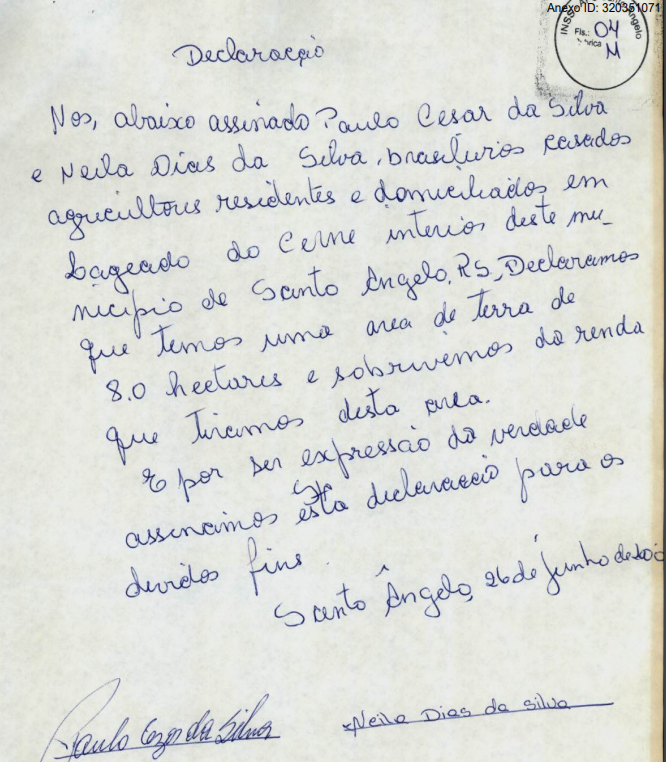 Anexo ID: 320351071
INSS
Angelo
Fls.: 04
M
Declaracção
Nos, abaixo assinado Paulo Cesar da Silva
e Neila Dias da Silva, brasileiros casados
agricultores residentes e domiciliados em
Lageado do Cerne interior deste mu-
nicipio de Santo Ângelo, RS, Declaramos
que temos uma area de terra de
8.0 hectares e sobrivemos da renda
que tiramos desta area.
E por ser expressão da verdade
assinamos esta declaracção para os
devidos fins.
Santo Ângelo, 26 de Junho de
Paulo Cezar da Silva
Neila Dias da Silva